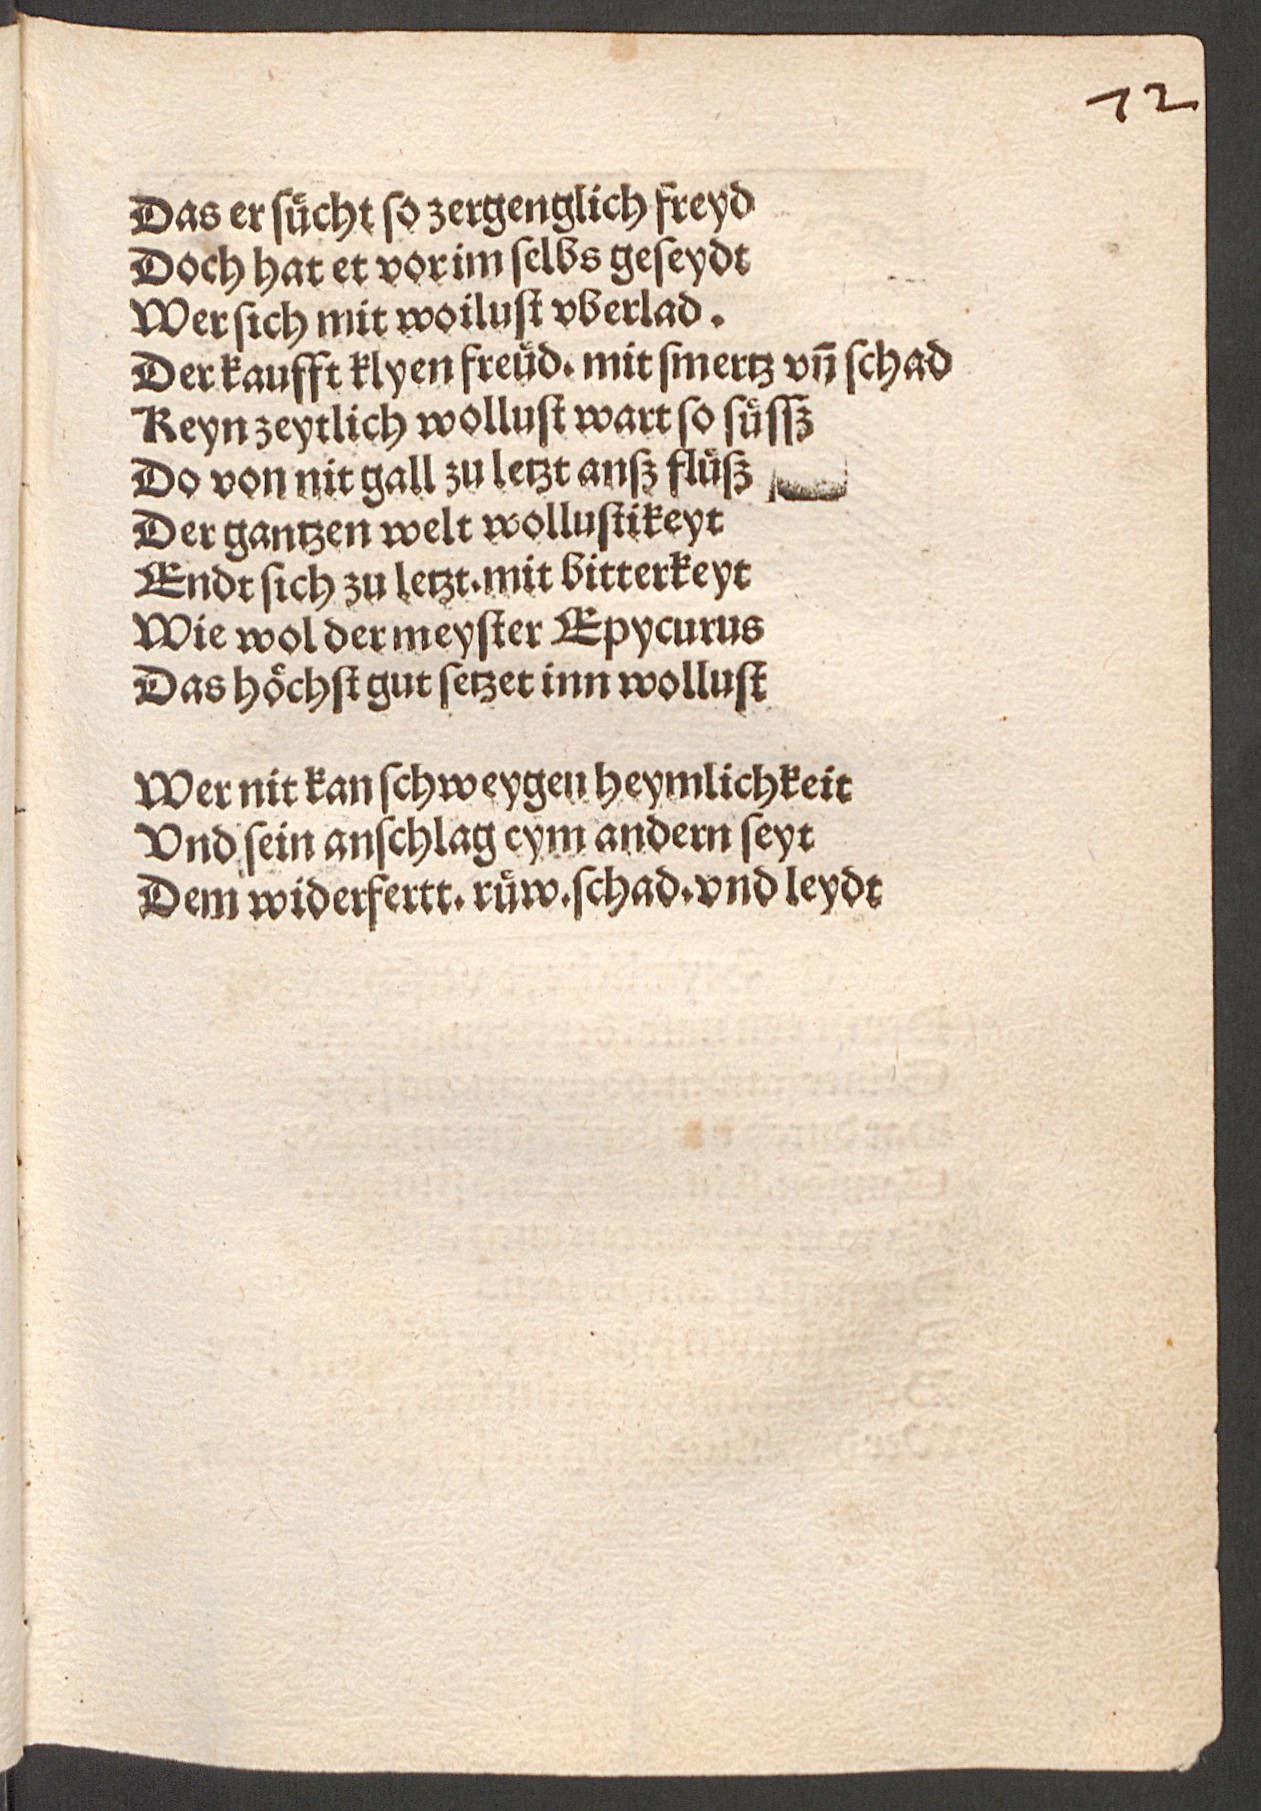 72
Das er sücht so zergenglich freyd
Doch hat et vor im selbs geseydt
Wer sich mit woilust vberlad.
Der kaufft klyen freüd. mit smertz vn̄ schad
Keyn zeytlich wollust wart so süssz
Do von nit gall zu letzt ansz flüsz
Der gantzen welt wollustikeyt
Endt sich zu letzt. mit bitterkeyt
Wie wol der meyster Epycurus
Das höchst gut setzet inn wollust
Wer nit kan schweygen heymlichkeit
Vnd sein anschlag eym andern seyt
Dem widerfertt. rüw. schad. vnd leydt